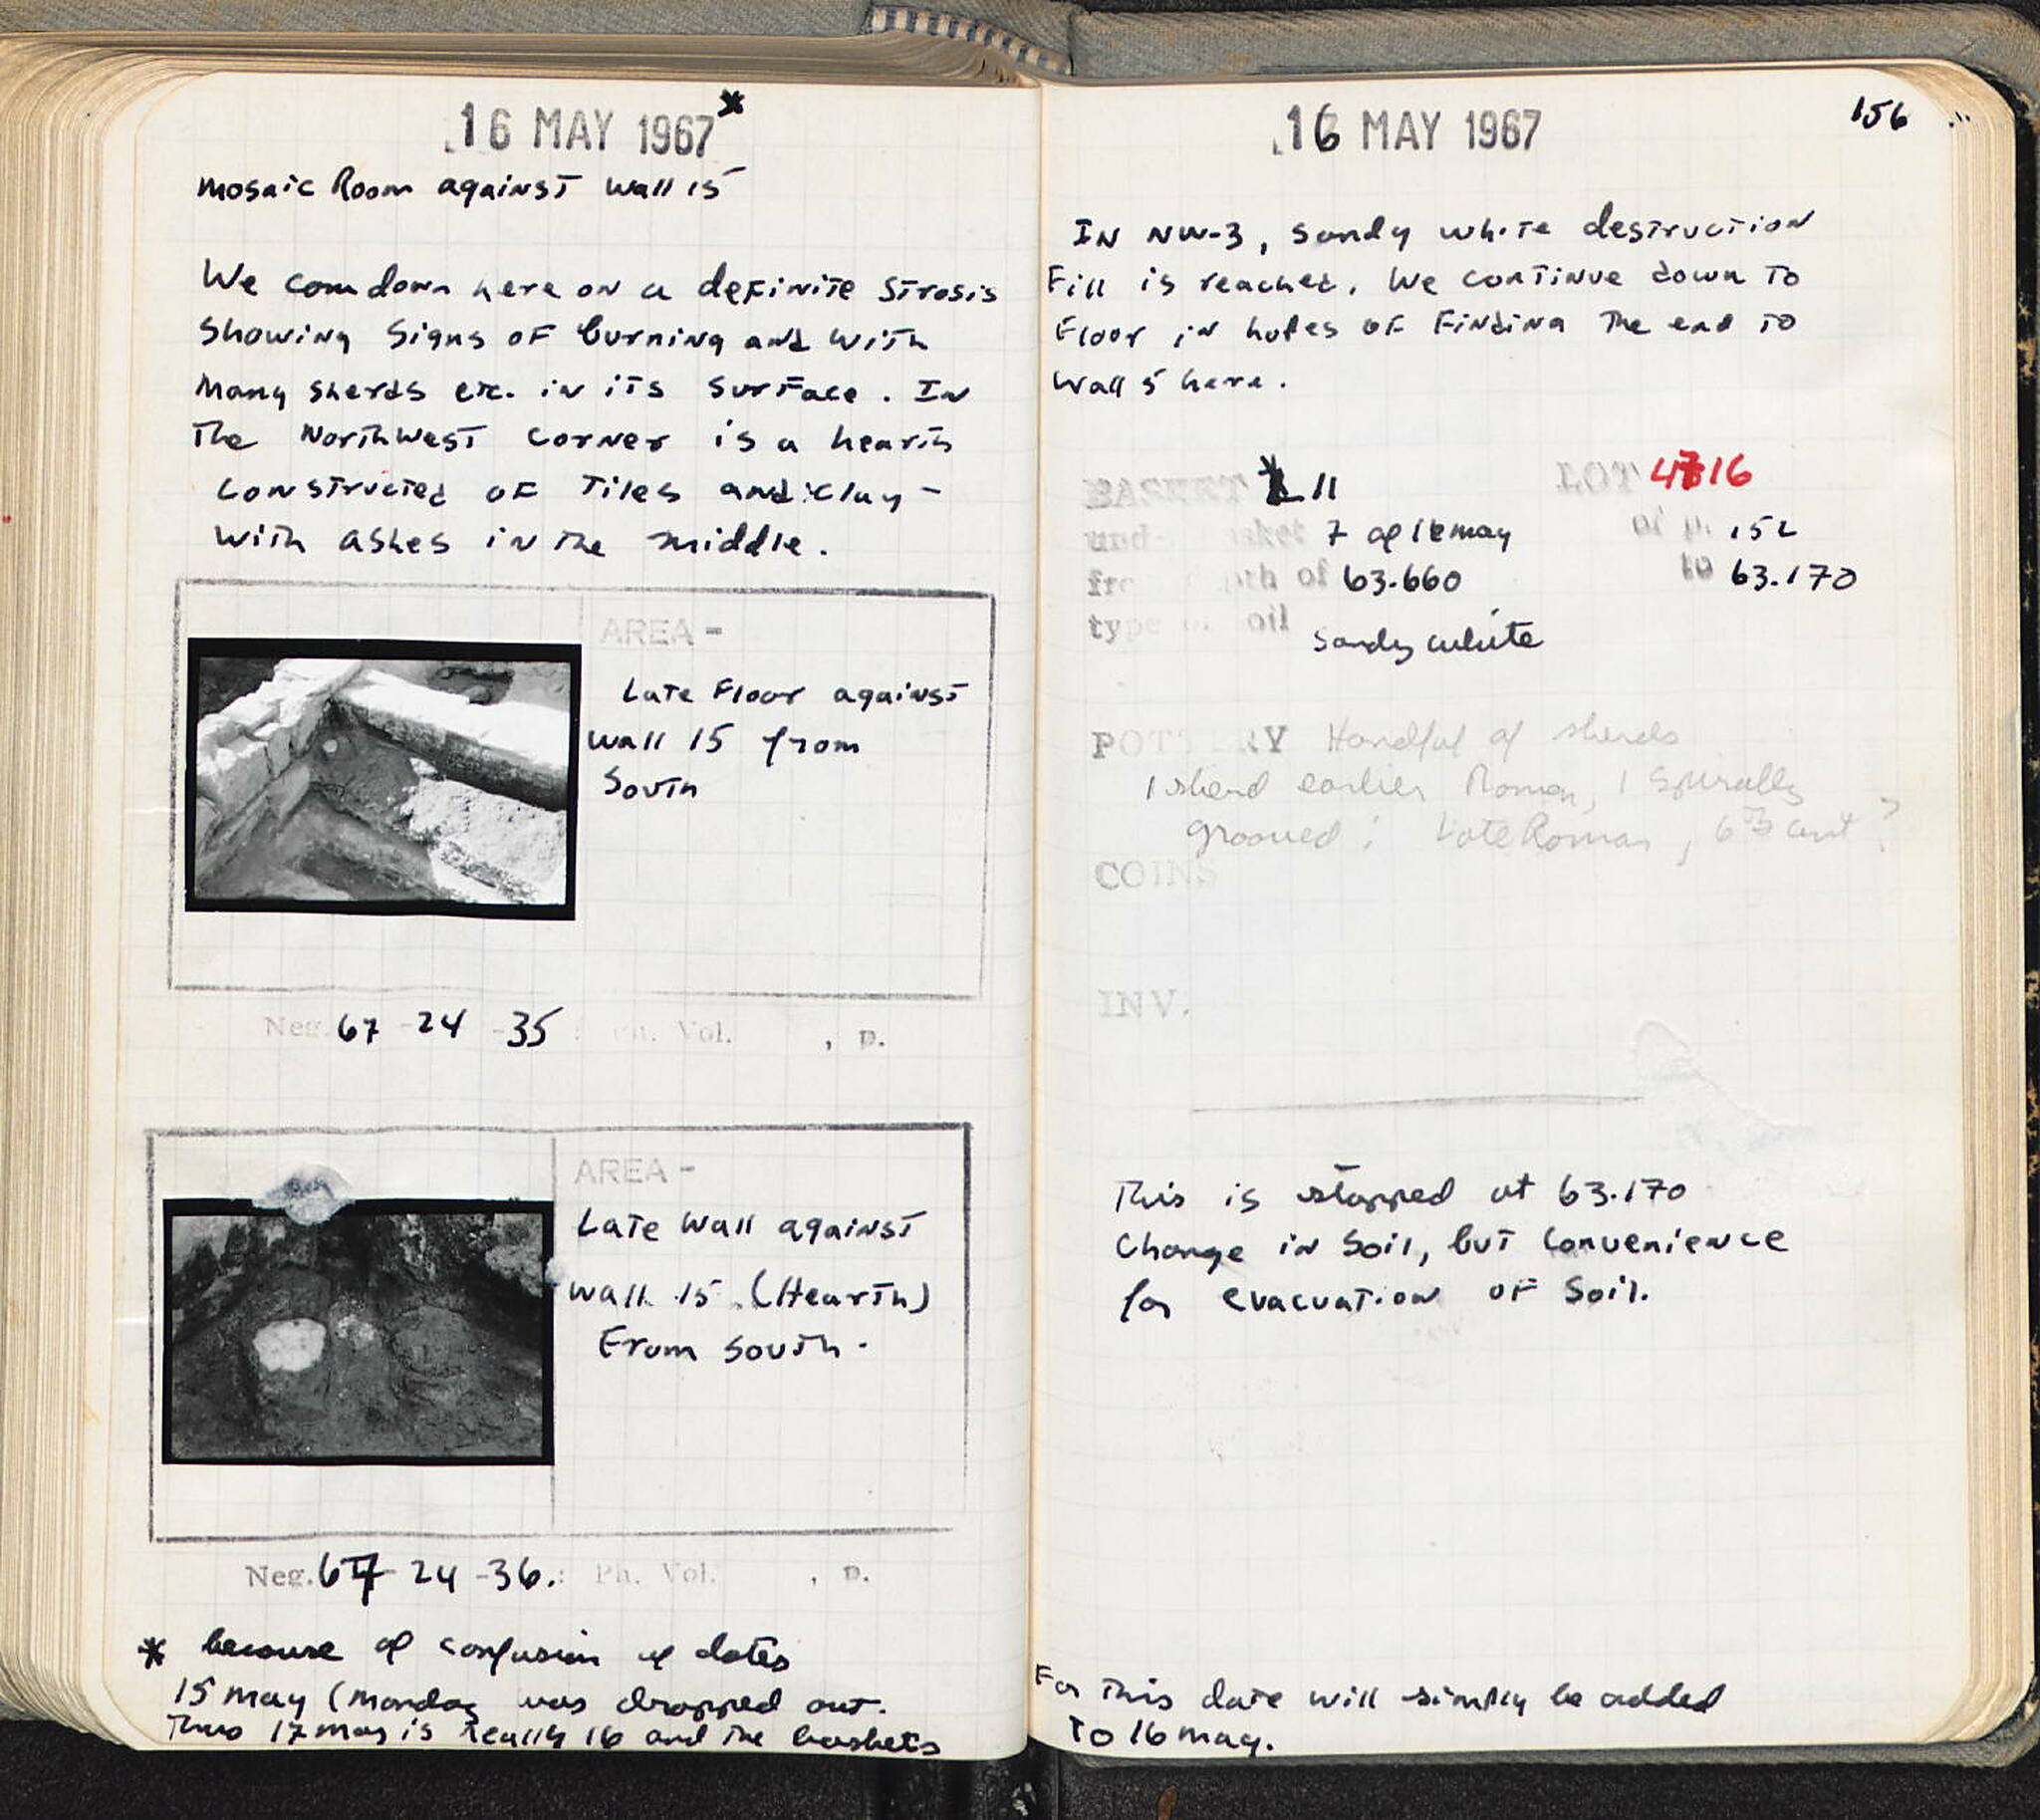 16 MAY 1967*
Mosaic Room against wall 15
We com down here on a definite strosis
showing signs of burning and with
many sherds etc. in its surface. In
the Northwest corner is a hearth
constructed of tiles and clay -
with ashes in the middle.
AREA -
Late Floor against
wall 15 from
South
Neg. 67 - 24 - 35 : Ph. Vol. , p.
AREA -
Late wall against
wall 15 (Hearth)
From south.
Neg. 67 - 24 - 36. : Ph. Vol. , p.
* because of confusion of dates
15 may (monday was dropped out.
Thus 17 may is really 16 and the baskets
16 MAY 1967
156
In NW-3, sandy white destruction
Fill is reached. We continue down to
Floor in hopes of finding the end to
wall 5 here.
BASKET * 11 LOT 4716
und basket 7 of 16 may of p. 152
fr pth of 63.660 to 63.170
type of soil sandy white
POTTERY Handful of sherds
1 sherd earlier Roman, 1 spirally
grooved: Late Roman, 6th cent?
COINS
INV.
This is stopped at 63.170
change in soil, but convenience
for evacuation of soil.
For this date will simply be added
to 16 may.